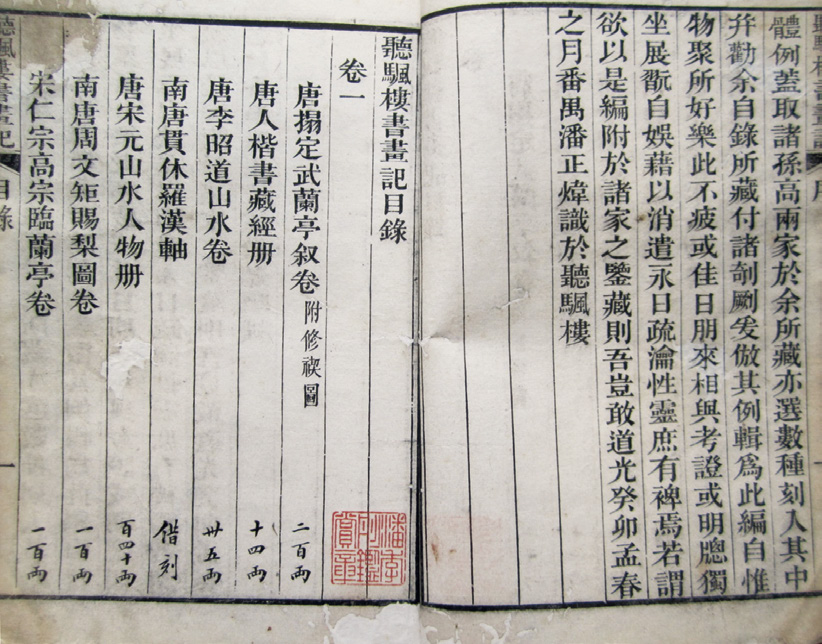 聽颿樓書畫記 序
體例蓋取諸孫高兩家於余所藏亦選數種刻入其中
幷勸余自錄所藏付諸剞劂爰倣其例輯爲此編自惟
物聚所好樂此不疲或佳日朋來相與考證或明牕獨
坐展翫自娛藉以消遣永日疏瀹性靈庶有裨焉若謂
欲以是編附於諸家之鑒藏則吾豈敢道光癸卯孟春
之月番禺潘正煒識於聽颿樓
聽颿樓書畫記目錄
卷一
潘季彤鑑賞章
唐搨定武蘭亭叙卷 附修禊圖 二百両
唐人楷書藏經册 十四両
唐李昭道山水卷 卅五両
南唐貫休羅漢軸 借刻
唐宋元山水人物册 百四十両
南唐周文矩賜梨圖卷 一百両
宋仁宗高宗臨蘭亭卷 一百両
聽颿樓書畫記 目錄 一